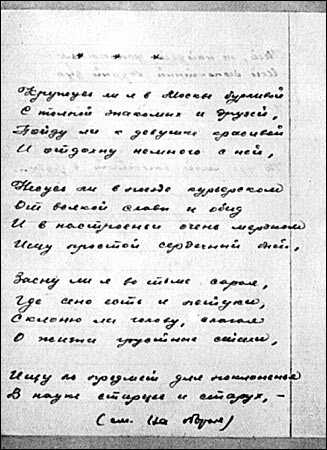 * * *
Кружусь ли я в Москве бурливой
С толпой знакомых и друзей,
Пойду ли к девушке красивой
И отдохну немного с ней,
Несусь ли в поезде курьерском
От всякой славы и обид
И в настроеньи очень мерзком
Ищу простой сердечный
Засну ли я во тьме сарая,
Где сено есть и петухи,
Склоню ли голову, слагая
О жизни грустные стихи,
Ищу ль предмет для поклоненья
В науке старцев и старух, –
(см. на обороте)